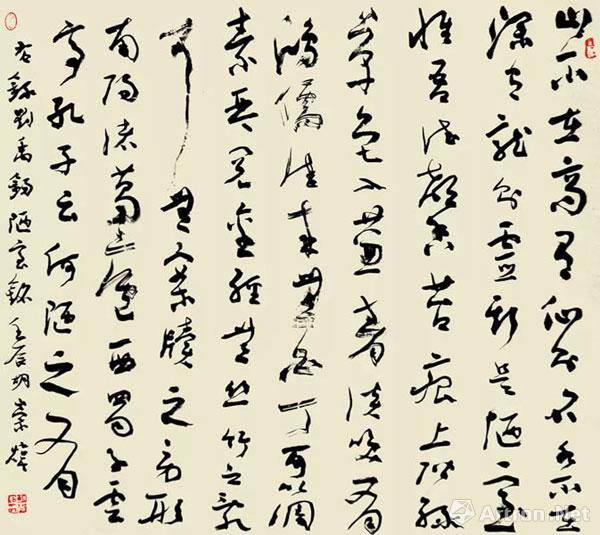 山不在高有仙則名水不在
深有龍則靈斯是陋室
惟吾德馨苔痕上階綠
草色入簾青談笑有
鴻儒往來無白丁可以調
素琴閱金經無絲竹之亂
耳無案牘之勞形
南陽諸葛廬西蜀子雲
亭孔子云何陋之有
右錄劉禹錫陋室銘壬辰胡崇煒
Artron.Net